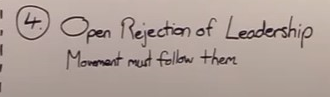 4. Open Rejection of Leadership
Movement must follow them